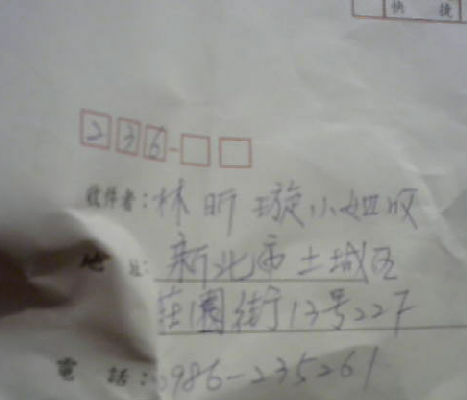 快 捷
236-
收件者：林昕璇小姐收
地 址：新北市土城區
莊園街13号22F
電 話：0986-235261